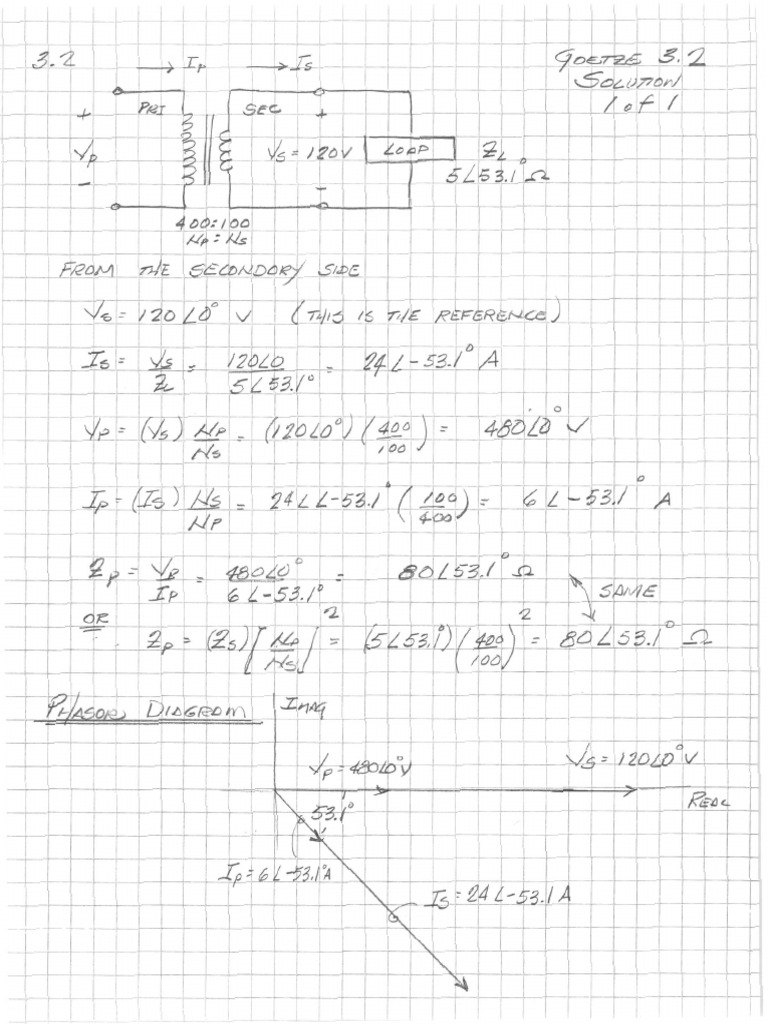 3.2
GOETZE 3.2
SOLUTION
1 of 1
→ Ip → Is
+ PRI SEC +
Vp Vs = 120V LOAD ZL
5∠53.1° Ω
- -
400:100
Np = Ns
FROM THE SECONDORY SIDE
Vs = 120∠0° V (THIS IS THE REFERENCE)
Is = Vs/ZL = 120∠0/5∠53.1° = 24∠-53.1° A
Vp = (Vs) Np/Ns = (120∠0°)(400/100) = 480∠0° V
Ip = (Is) Ns/Np = 24∠∠-53.1° (100/400) = 6∠-53.1° A
Zp = Vp/Ip = 480∠0°/6∠-53.1° = 80∠53.1° Ω
SAME
OR
Zp = (Zs)[Np/Ns]² = (5∠53.1°)(400/100)² = 80∠53.1° Ω
PHASOR DIAGRAM
IMAG
Vp = 480∠0° V Vs = 120∠0° V
REAL
53.1°
Ip = 6∠-53.1° A
Is = 24∠-53.1 A